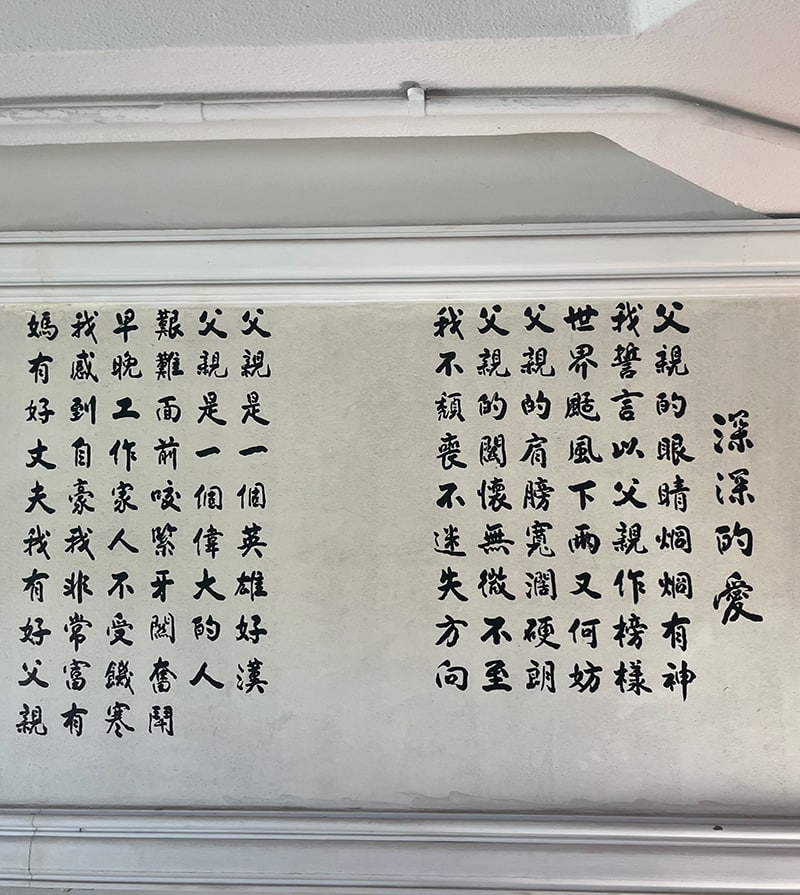 深深的愛
父親的眼睛炯炯有神
我誓言以父親作榜樣
世界颳風下雨又何妨
父親的肩膀寬濶硬朗
父親的關懷無微不至
我不頹喪不迷失方向
父親是一個英雄好漢
父親是一個偉大的人
艱難面前咬緊牙關奮鬥
早晚工作家人不受饑寒
我感到自豪我非常富有
媽有好丈夫我有好父親